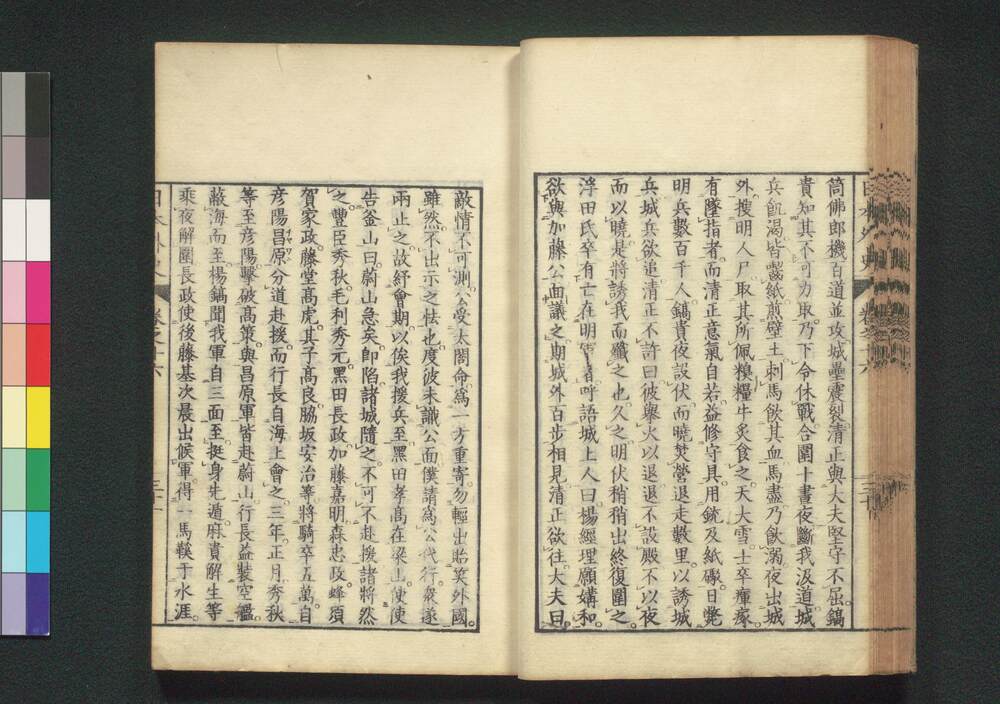 筒佛郎機百道並攻城壘震裂清正與大夫堅守不屈鎬
貴知其不可力取乃下令休戰合圍十晝夜斷我汲道城
兵飢渴皆齧紙煎壁土刺馬飲其血馬盡乃飲溺夜出城
外搜明人尸取其所佩糗糧牛炙食之天大雪士卒瘃
有墮指者而清正意氣自若益修守具用銃及紙礟日斃
明兵數百千人鎬貴夜設伏而曉焚營退走數里以誘城
兵城兵欲追清正不許曰彼擧火以退退不設殿不以夜
而以曉是將誘我而殲之也久之明伏稍稍出終復圍之
浮田氏卒有亡在明軍者呼語城上人曰楊經理願媾和
欲與加藤公面議之期城外百步相見清正欲往大夫曰
敵情不可測公受太閤命爲一方重寄勿輕出貽笑外國
雖然不出示之怯也度彼未識公面僕請爲公代行衆遂
兩止之故紓會期以俟我援兵至黑田孝高在梁山使使
告釜山曰蔚山急矣卽陷諸城隨之不可不赴援諸將然
之豐臣秀秋毛利秀元黑田長政加藤嘉明森忠政蜂須
賀家政藤堂高虎其子高良脇坂安治等將騎卒五萬自
彦陽昌原分道赴援而行長自海上會之三年正月秀秋
等至彦陽擊破高策與昌原軍皆赴蔚山行長益裝空艦
蔽海而至楊鎬聞我軍自三面至挺身先遁麻貴解生等
乘夜解圍長政使後藤基次晨出候軍得一馬鞍于水涯